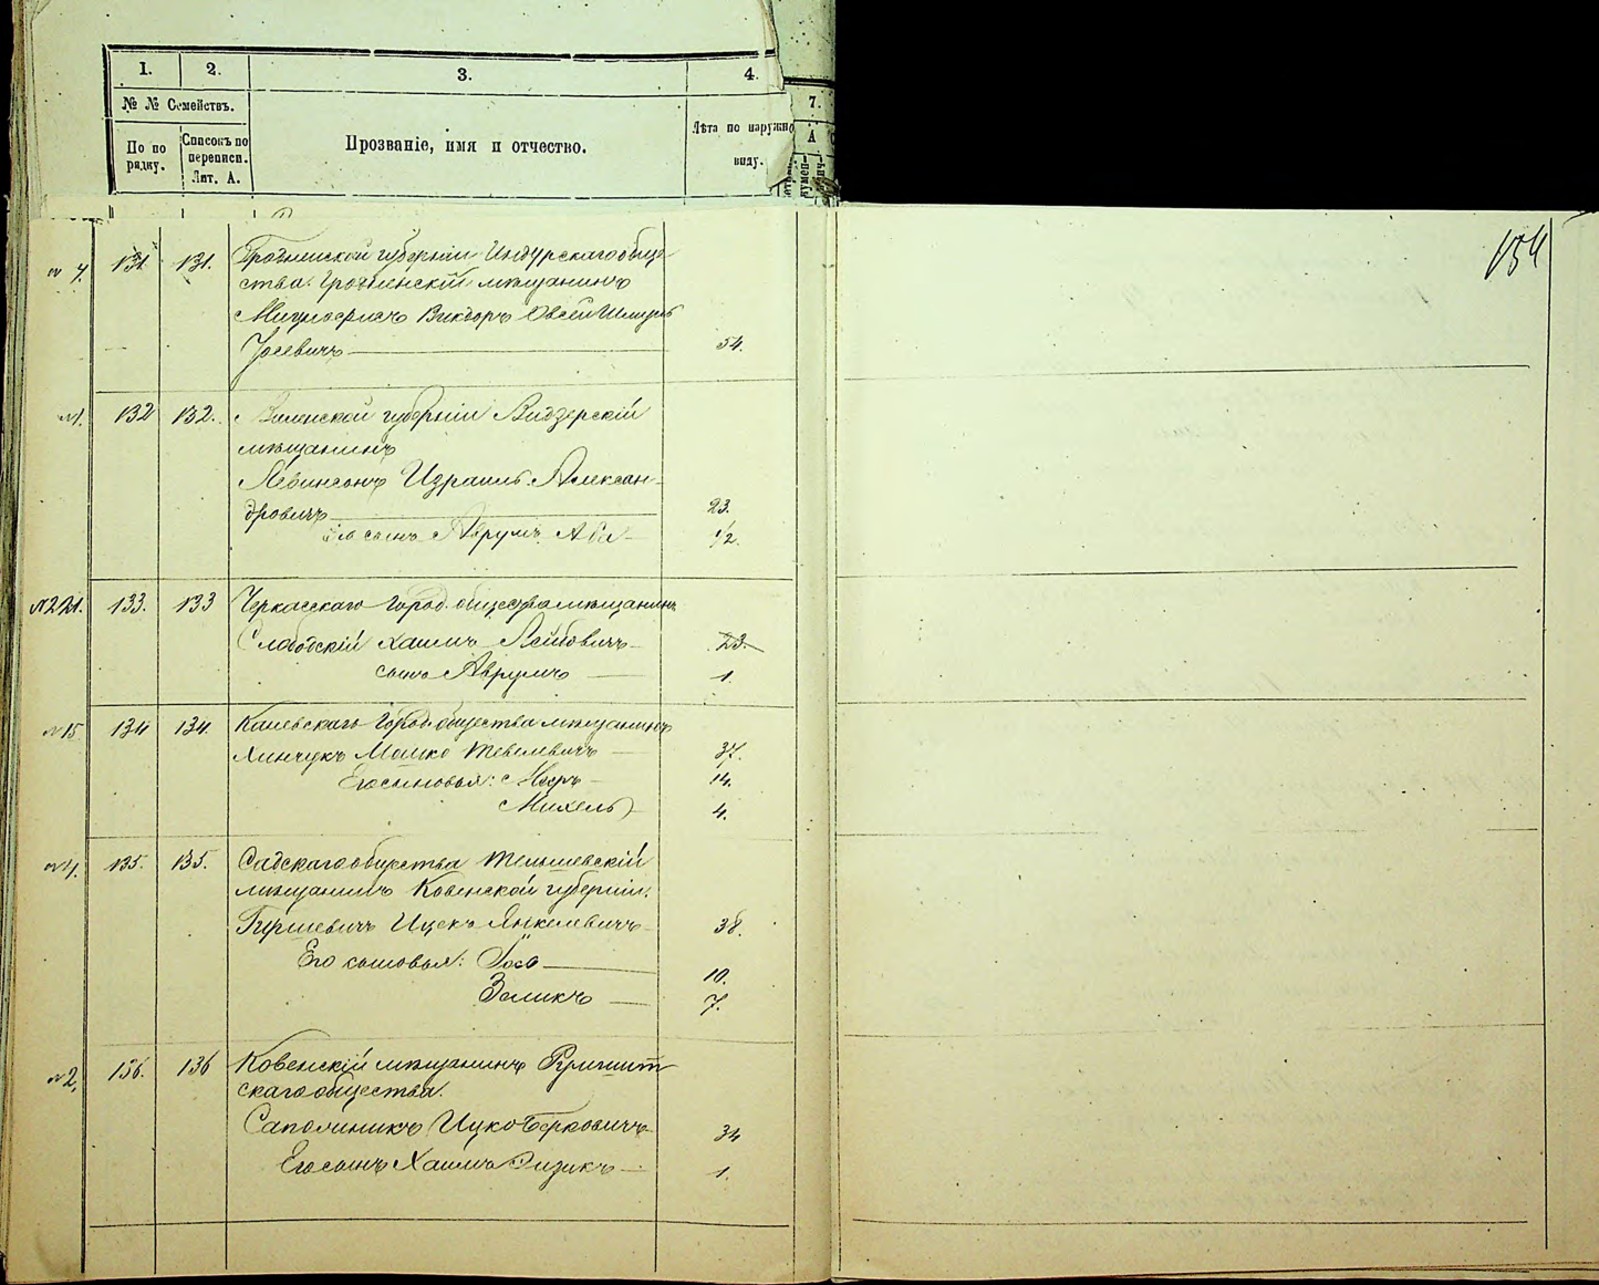 1. 2. 3. 4.
7.
№ № Семействъ.
По по рядку.
Списокъ по переписи. Лит. А.
Прозваніе, имя и отчество.
Лѣта по наружн виду.
А
154
№ 4. 131 131. Гродненской губерніи Индурскаго обще
ства Гродненскій мѣщанинъ
Викторъ Овсей Шмуль
Іосевичъ 54.
№ 1. 132 132. Виленской губерніи Видзерскій
мѣщанинъ
Левинсонъ Израиль Алексан-
дровичъ 23.
его сынъ Аврумъ Аба 1/2.
№ 221. 133. 133 Черкасскаго город. общества мѣщанинъ
Слободскій Хаимъ Лейбовичъ 23.
сынъ Аврумъ 1.
№ 15 134 134. Каневскаго город. общества мѣщанинъ
Линчукъ Мошко Тевелевичъ 37.
Его сыновья: 14.
Михель 4.
№ 4. 135. 135. Садскаго общества Тельшевскій
мѣщанинъ Ковенской губерніи.
Гиршевичъ Ицекъ Янкелевичъ 38.
Его сыновья: 10.
Зеликъ 7.
№ 2. 136. 136 Ковенскій мѣщанинъ
скаго общества.
Саполникъ Ицко Берковичъ 34
Его сынъ Хаимъ Эизикъ 1.